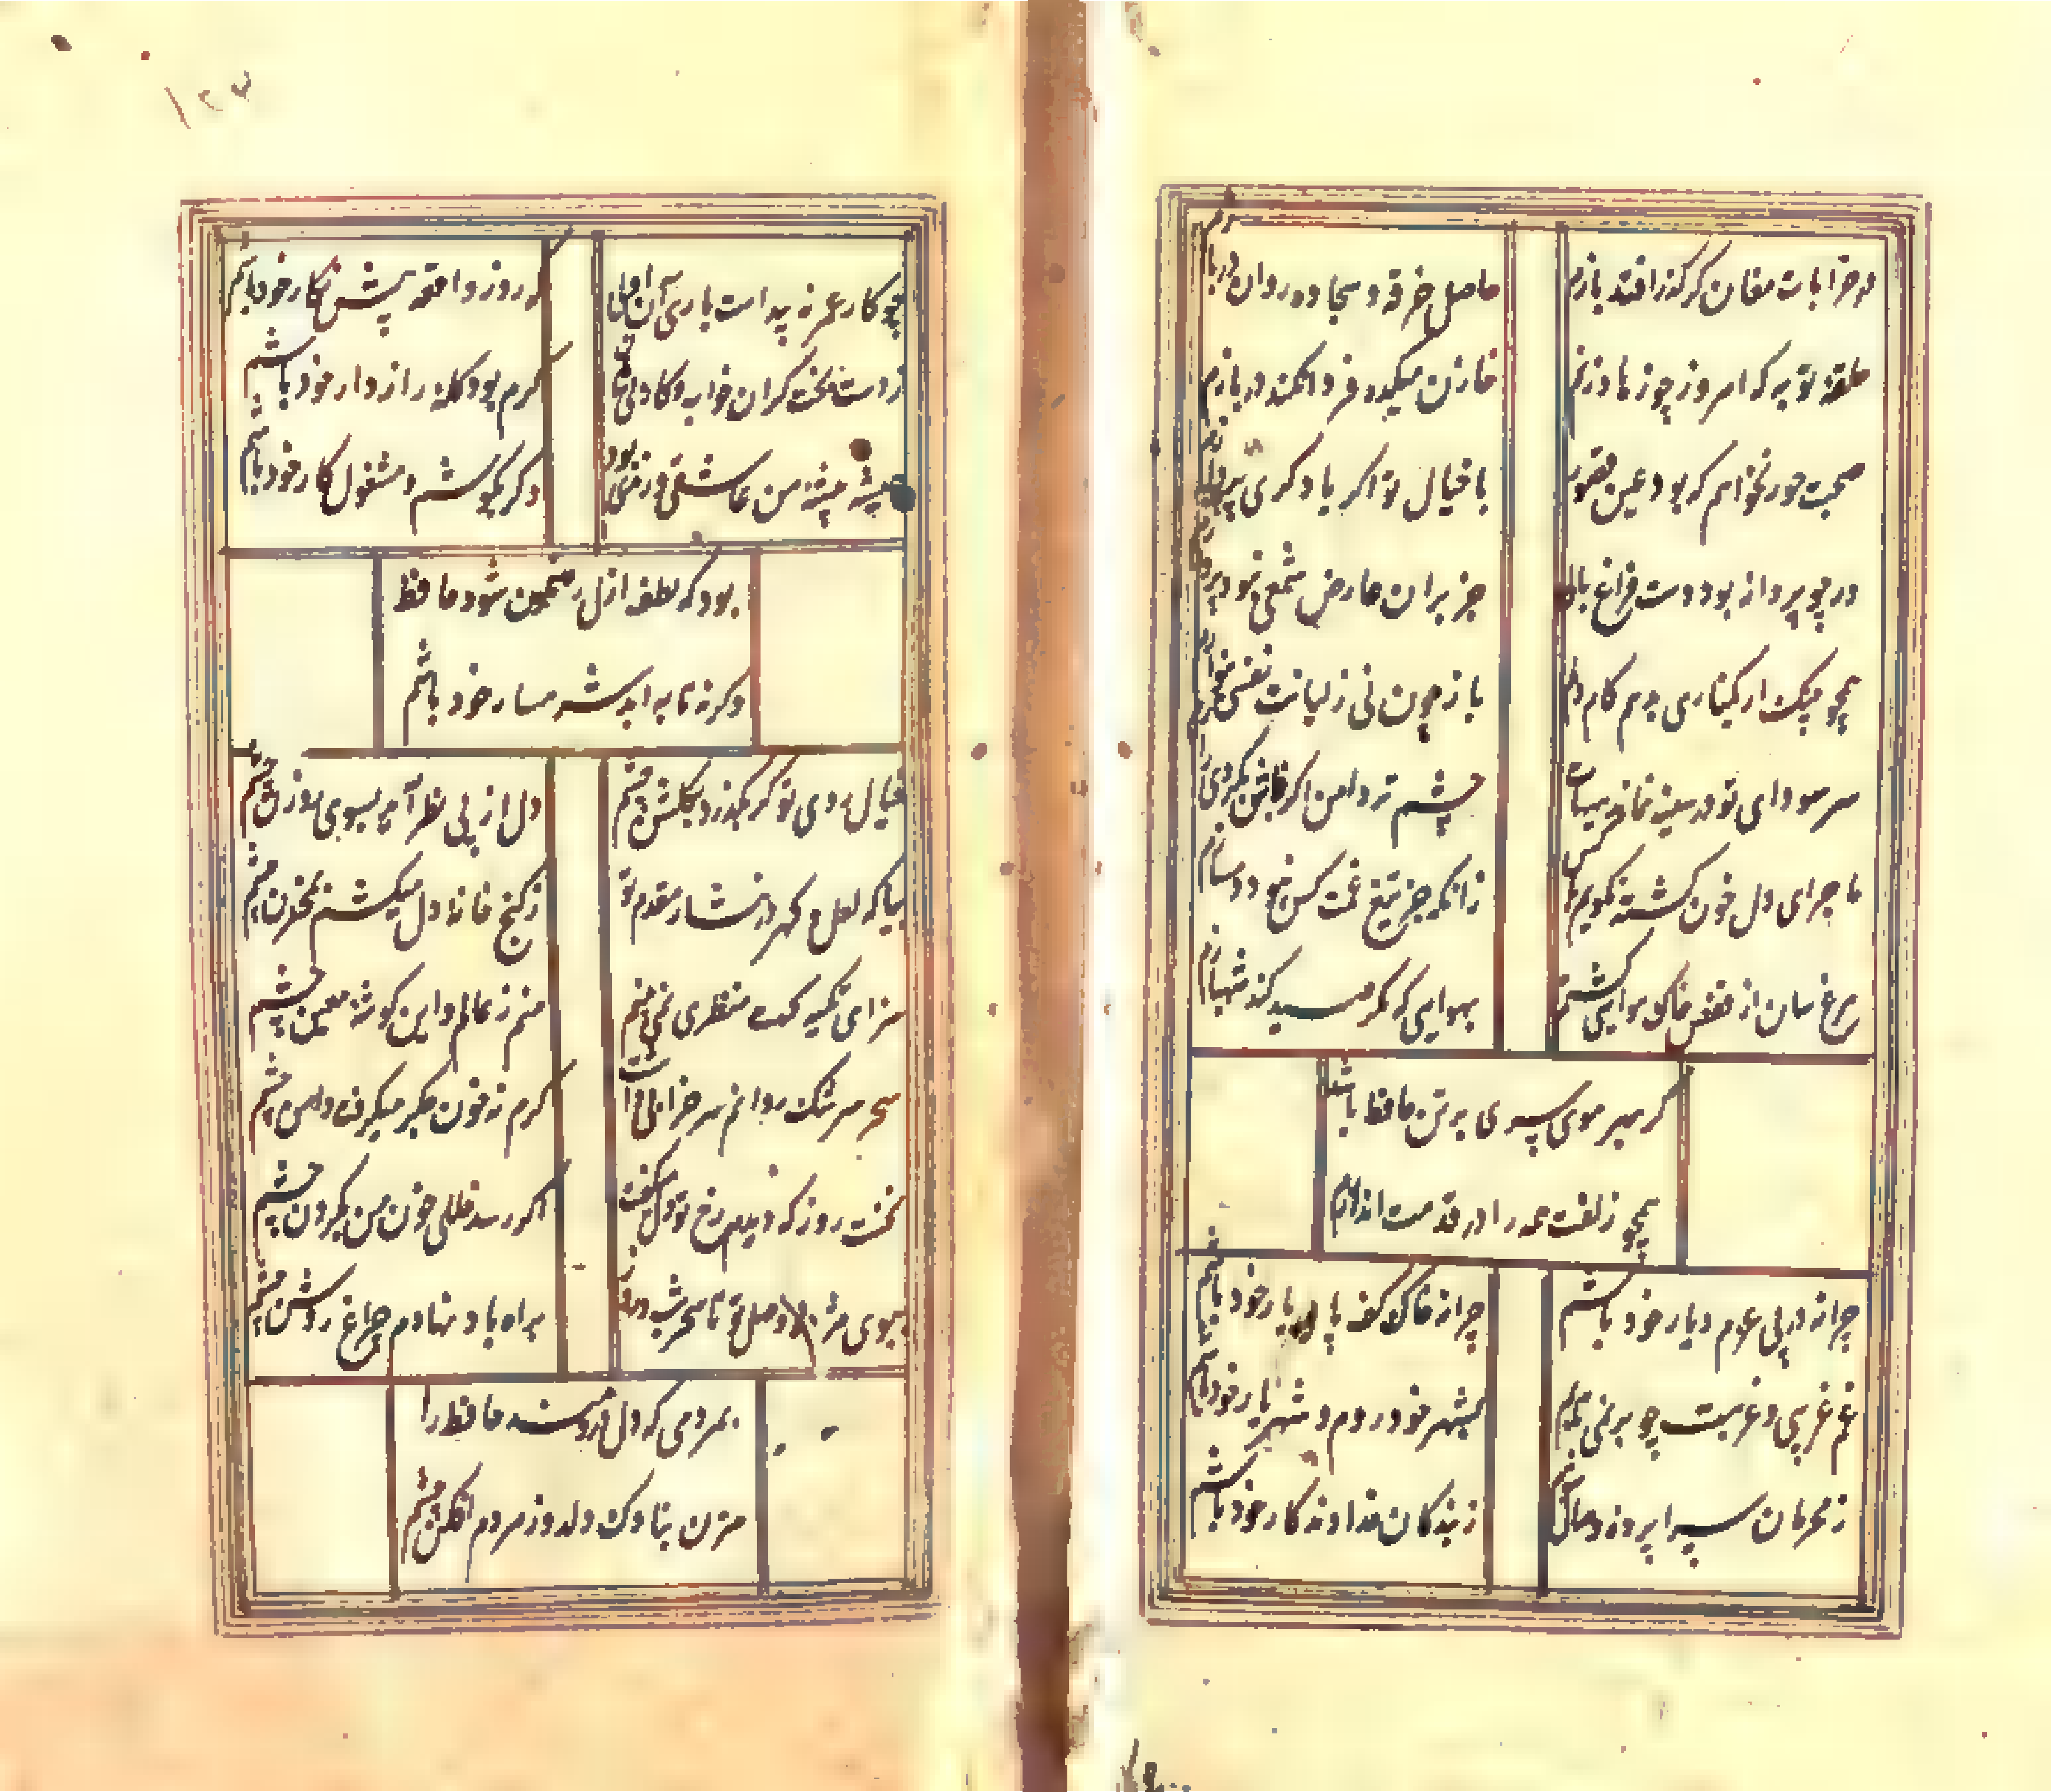 در خرابات مغان گر گذر افتد بازم
حاصل خرقه و سجاده روان دربازم
حلقه توبه گر امروز چو زهاد زنم
خازن میکده فردا نکند در بازم
صحبت حور نخواهم که بود عین قصور
با خیال تو اگر با دگری پردازم
ور چو پروانه بود دست فراغ بالی
جز بران عارض شمعی نبود پروازم
همچو چنگ ار بکناری بدهم کام دلم
باز چون نی ز لبانت نفسی بنوازم
سر سودای تو در سینه نماندی پنهان
چشم تر دامن اگر فاش نکردی رازم
ماجرای دل خون گشته نگویم با کس
زانکه جز تیغ غمت کس نبود دمسازم
مرغ سان از قفس خاک هوایی گشتم
بهوایی که مگر صید کند شهبازم
گر بهر موی سری بر تن حافظ باشد
همچو زلفت همه را در قدمت اندازم
چرا نه در پی عزم دیار خود باشم
چرا نه خاک کف پای یار خود باشم
غم غریبی و غربت چو بر نمی تابم
بشهر خود روم و شهریار خود باشم
ز محرمان سراپرده وصال شوم
ز بندگان خداوندگار خود باشم
چو کار عمر نه پیداست باری آن اولی
که روز واقعه پیش نگار خود باشم
ز دست بخت گران خواب و کار بی سامان
گرم بود گله راز دار خود باشم
همیشه پیشه من عاشقی و رندی بود
دگر بکوشم و مشغول کار خود باشم
بود که لطف ازل رهنمون شود حافظ
وگرنه تا به ابد شرمسار خود باشم
خیال روی تو گر بگذرد بگلشن چشم
دل از پی نظر آید بسوی روزن چشم
بیا که لعل و گهر در نثار مقدم تو
ز گنج خانه دل میکشم بمخزن چشم
سزای تکیه گهت منظری نمی بینم
منم ز عالم و این گوشه معین چشم
سحر سرشک روانم سر خرابی داشت
گرم نه خون جگر میگرفت دامن چشم
نخست روز که دیدم رخ تو دل میگفت
اگر رسد خللی خون من بگردن چشم
ببوی مژده وصل تو تا سحر شب دوش
براه باد نهادم چراغ روشن چشم
بمردمی که دل دردمند حافظ را
مزن بناوک دلدوز مردم افکن چشم